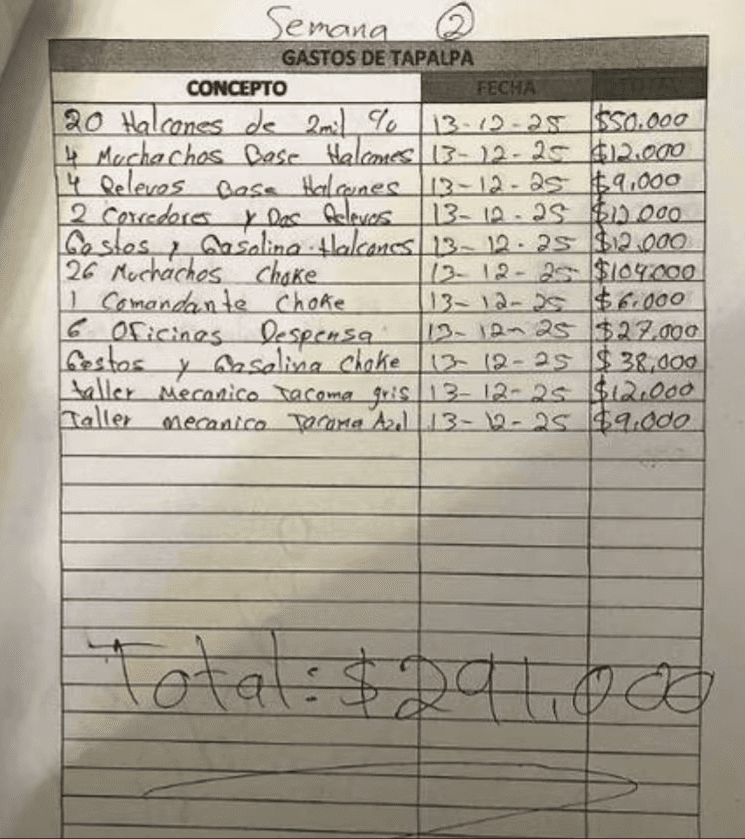 Semana 2
GASTOS DE TAPALPA
CONCEPTO FECHA TOTAL
20 Halcones de 2mil % 13-12-25 $50.000
4 Muchachos Base Halcones 13-12-25 $12.000
4 Relevos Base Halcones 13-12-25 $9,000
2 Corredores y Dos Relevos 13-12-25 $12.000
Gastos y Gasolina Halcones 13-12-25 $12.000
26 Muchachos Choke 13-12-25 $104.000
1 Comandante Choke 13-12-25 $6.000
6 Oficinas Despensa 13-12-25 $27.000
Gastos y Gasolina Choke 13-12-25 $38,000
taller Mecanico Tacoma gris 13-12-25 $12,000
Taller mecanico Tacoma Azul 13-12-25 $9.000
Total: $291,000